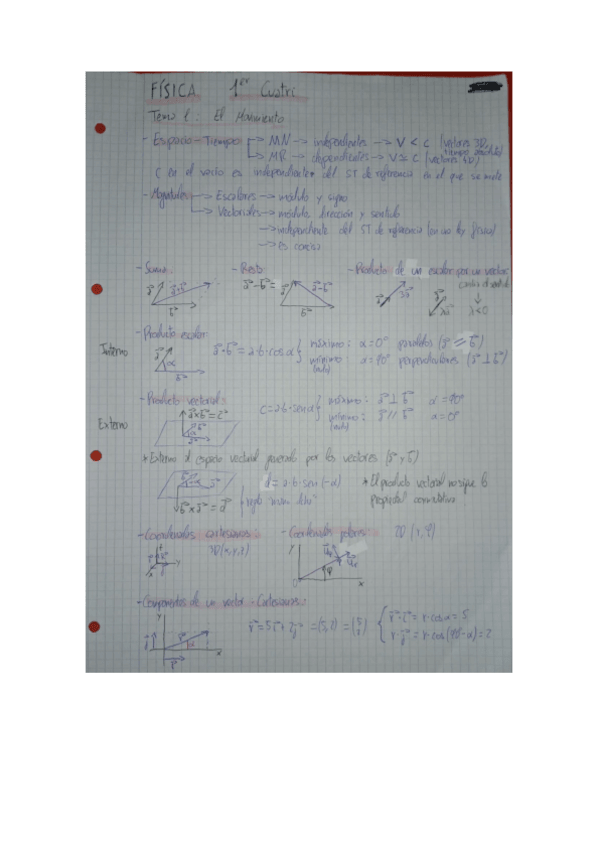 FÍSICA 1er Cuatri
Tema 1: El Movimiento
- Espacio - Tiempo → MN → independientes → V < c (vectores 3D, tiempo absoluto)
→ MR → dependientes → V ≃ c (vectores 4D)
C en el vacío es independiente del ST de referencia en el que se mide
- Magnitudes → Escalares → módulo y signo
→ Vectoriales → módulo, dirección y sentido
→ independiente del ST de referencia (en una ley física)
→ es
- Suma: - Resta: - Producto de un escalar por un vector
a⃗ a⃗+b⃗ b⃗ a⃗-b⃗ = a⃗ a⃗-b⃗ b⃗ a⃗ λa⃗ a⃗ λa⃗ cambia el sentido ↓ λ<0
Interno
- Producto escalar:
a⃗ α b⃗ a⃗·b⃗ = a·b·cosα { máximo: α=0º paralelos (a⃗ // b⃗)
mínimo: (nulo) α=90º perpendiculares (a⃗ ⊥ b⃗)
Externo
- Producto vectorial:
a⃗×b⃗=c⃗ b⃗ α a⃗ c=a·b·senα { máximo: a⃗⊥b⃗ α=90º
mínimo: (nulo) a⃗//b⃗ α=0º
* Externo al espacio vectorial generado por los vectores (a⃗ y b⃗)
b⃗×a⃗=d⃗ d=a·b·sen(-α)
regla mano
* El producto vectorial no sigue la
propiedad conmutativa
- Coordenadas cartesianas: - Coordenadas polares: 2D (r, φ)
3D (x,y,z)
z y x y x O φ
- Componentes de un vector - Cartesianas:
y x r⃗ α r⃗ = 5i⃗ + 2j⃗ = (5,2) = (5 2) { r⃗·i⃗ = r·cosα = 5
r·j⃗ = r·cos(90-α) = 2